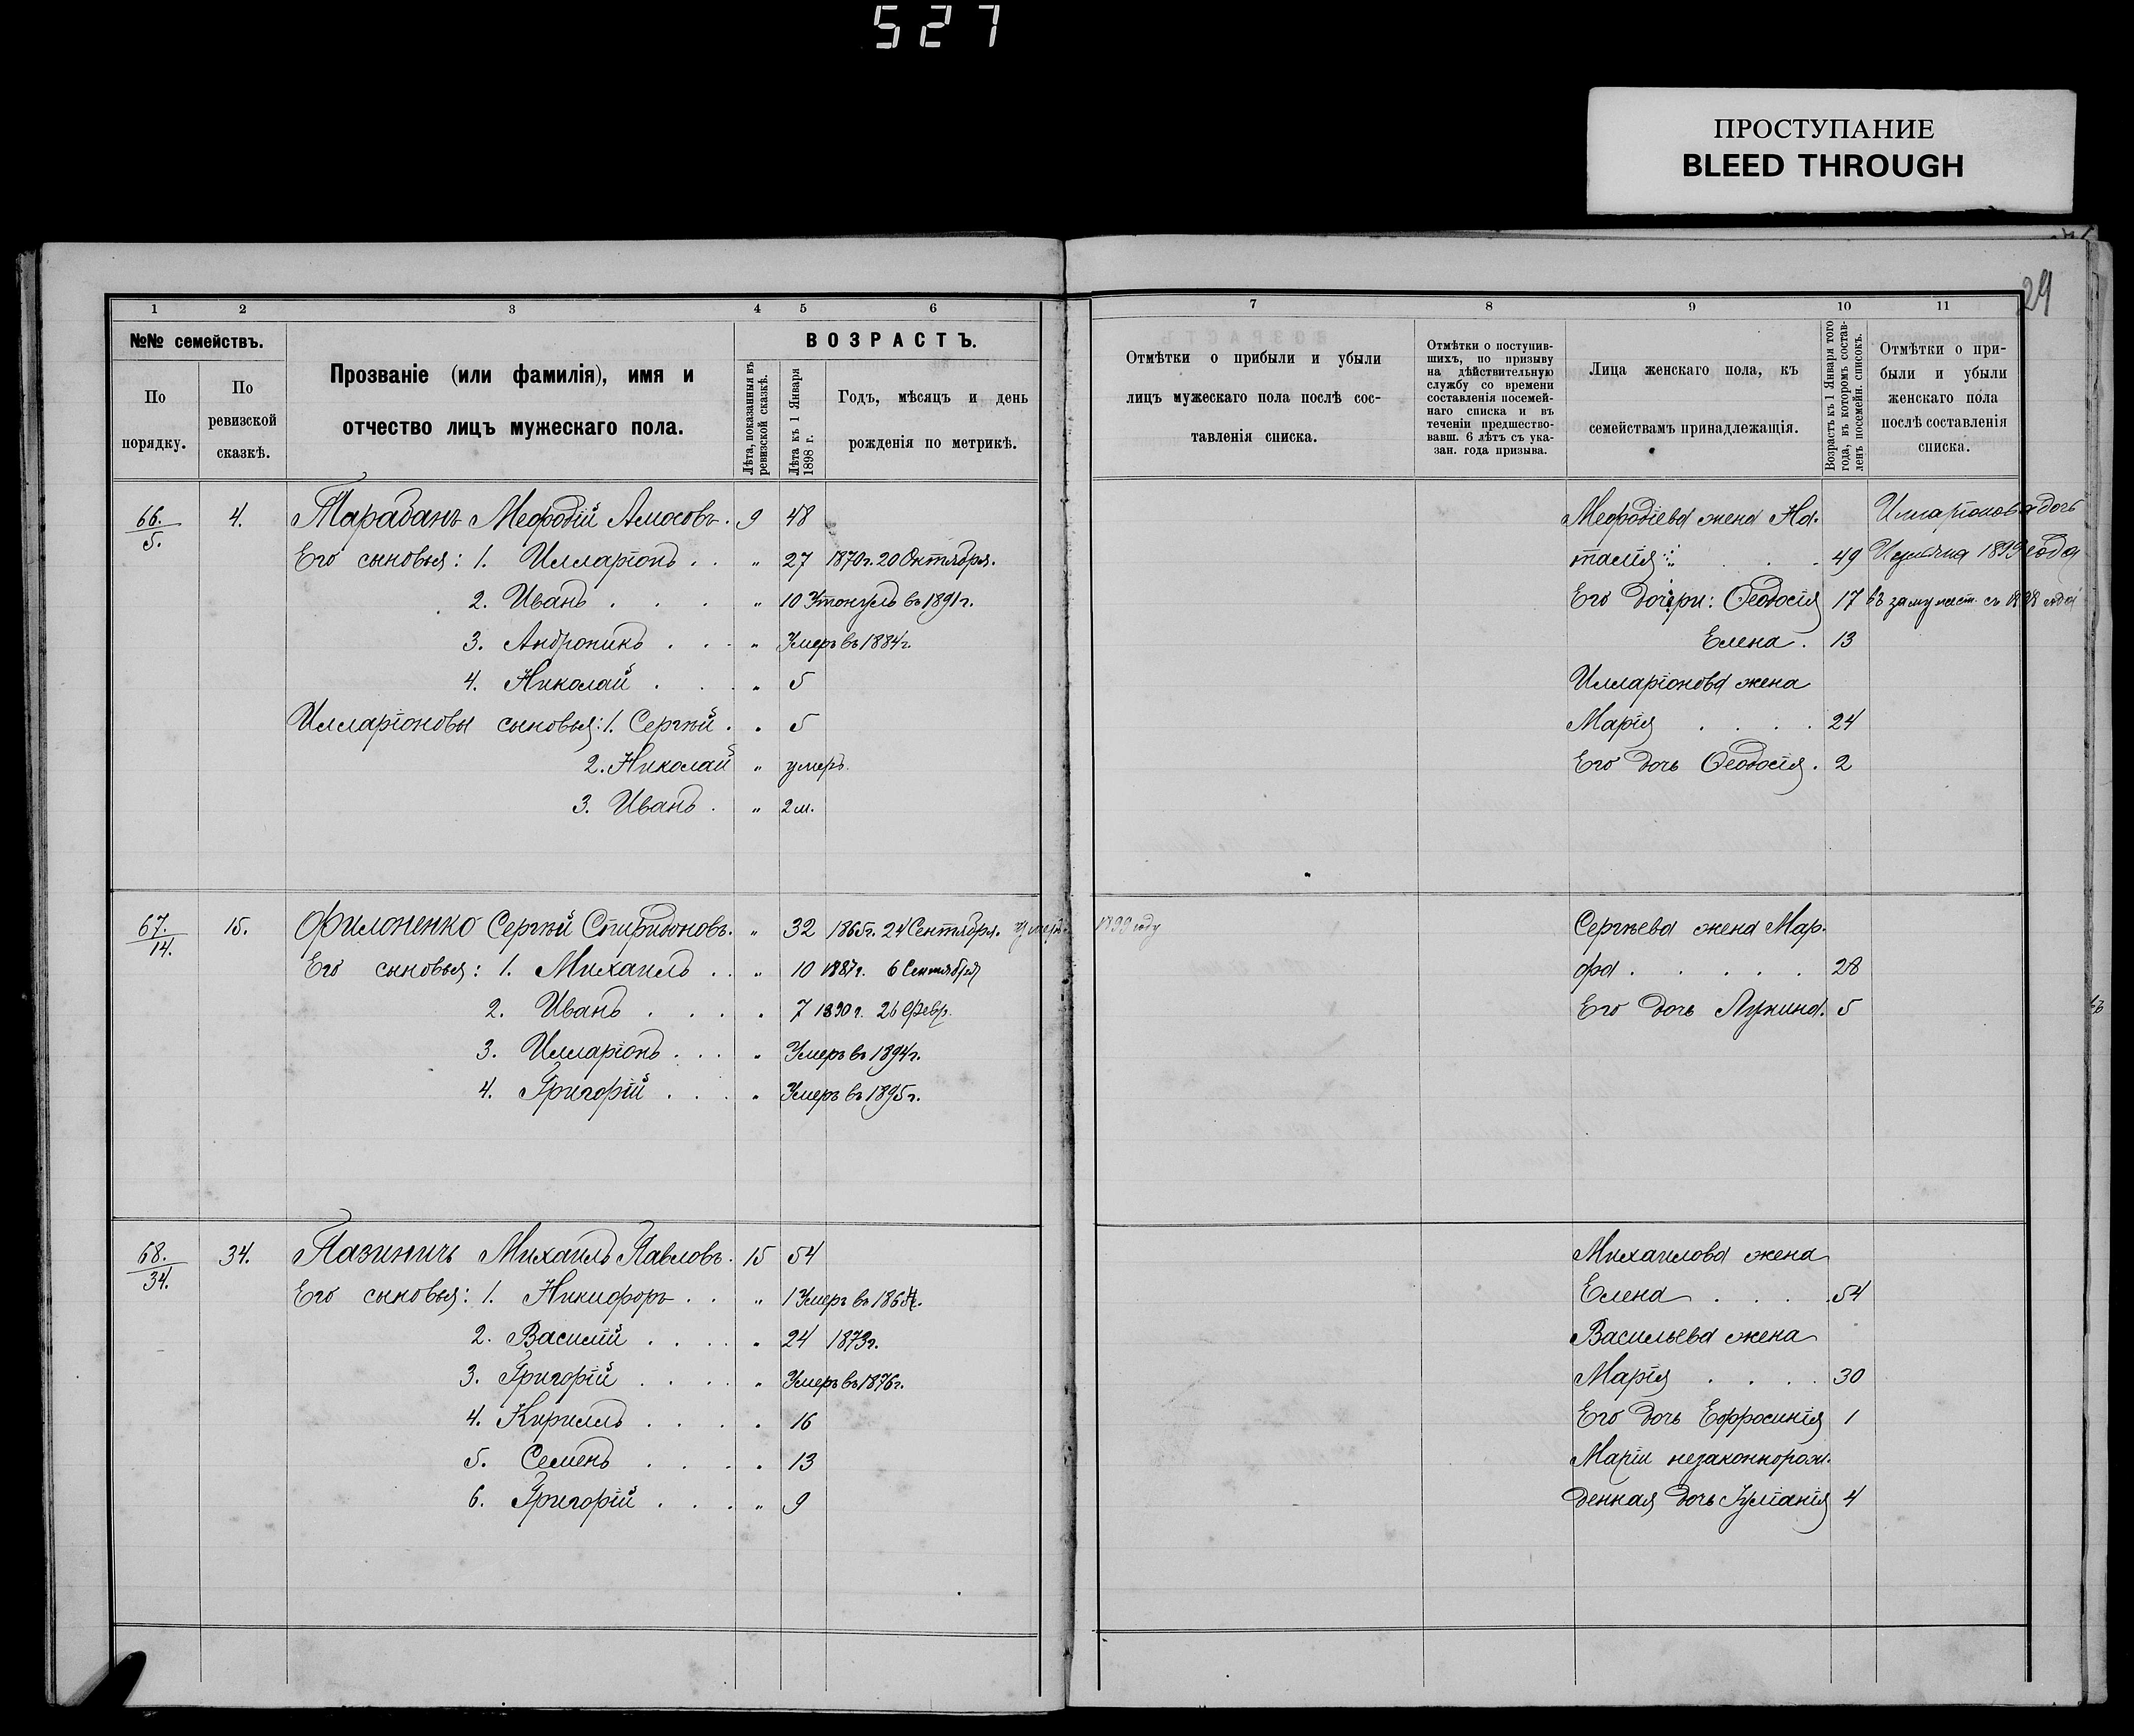 527
ПРОСТУПАНИЕ
BLEED THROUGH
29
1 2 3 4 5 6 7 8 9 10 11
№№ семействъ.
По порядку.
По ревизской сказкѣ.
Прозваніе (или фамилія), имя и
отчество лицъ мужескаго пола.
ВОЗРАСТЪ.
Лѣта, показанныя въ ревизской сказкѣ.
Лѣта къ 1 Января 1898 г.
Годъ, мѣсяцъ и день
рожденія по метрикѣ.
Отмѣтки о прибыли и убыли
лицъ мужескаго пола послѣ сос-
тавленія списка.
Отмѣтки о поступив-
шихъ, по призыву
на дѣйствительную
службу со времени
составленія посемей-
наго списка и въ
теченіи предшество-
вавш. 6 лѣтъ съ ука-
зан. года призыва.
Лица женскаго пола, къ
семействамъ принадлежащія.
Возрастъ къ 1 Января того
года, въ которомъ состав-
ленъ посемейн. списокъ.
Отмѣтки о при-
были и убыли
женскаго пола
послѣ составленія
списка.
66./5. 4. Тарабанъ Мефодій Амосовъ. 9 48
Его сыновья: 1. Илларіонъ . . " 27 1870г. 20 Октября.
2. Иванъ . . . " 10 Утонулъ въ 1891г.
3. Андроникъ . . . " Умеръ въ 1884г.
4. Николай . . . " 5
Илларіоновы сыновья: 1. Сергѣй . " 5
2. Николай " умеръ.
3. Иванъ . " 2 м.
Мефодіева жена На-
талія . . . 49
Его дочери: Ѳеодосія 17
Елена . 13
Илларіонова жена
Марія . . . . 24
Его дочь Ѳеодосія . 2
Илларіонова дочь
1899 года
въ замужест. съ 1898 года
67./14. 15. Филоненко Сергѣй Спиридоновъ. " 32 1865г. 24 Сентября. умеръ 1899 году
Его сыновья: 1. Михаилъ . . " 10 1887г. 6 Сентября
2. Иванъ . . . " 7 1890г. 26 Февр.
3. Илларіонъ . . . " Умеръ въ 1894г.
4. Григорій . . . " Умеръ въ 1895г.
Сергѣева жена Мар-
фа . . . . . 28
Его дочь Лукина. 5
68./34. 34. Пазиничъ Михаилъ Павловъ. 15 54
Его сыновья: 1. Никифоръ . . " 1 Умеръ въ
2. Василій . . . . " 24 1873г.
3. Григорій . . . . " Умеръ въ 1876г.
4. Кириллъ . . . . " 16
5. Семенъ . . . . " 13
6. Григорій . . . " 9
Михаилова жена
Елена . . . . 54
Васильева жена
Марія . . . . 30
Его дочь Ефросинія 1
Маріи незаконнорож-
денная дочь Іуліанія 4